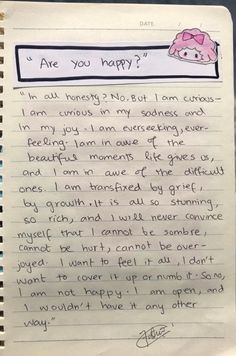 DATE
"Are you happy?"
"In all honesty? No. But I am curious –
I am curious in my sadness and
in my joy. I am everseeking, ever-
feeling. I am in awe of the
beautiful moments life gives us,
and I am in awe of the difficult
ones. I am transfixed by grief,
by growth. It is all so stunning,
so rich, and I will never convince
myself that I cannot be sombre,
cannot be hurt, cannot be over-
joyed. I want to feel it all, I don't
want to cover it up or numb it. So no,
I am not happy. I am open, and
I wouldn't have it any other
way."